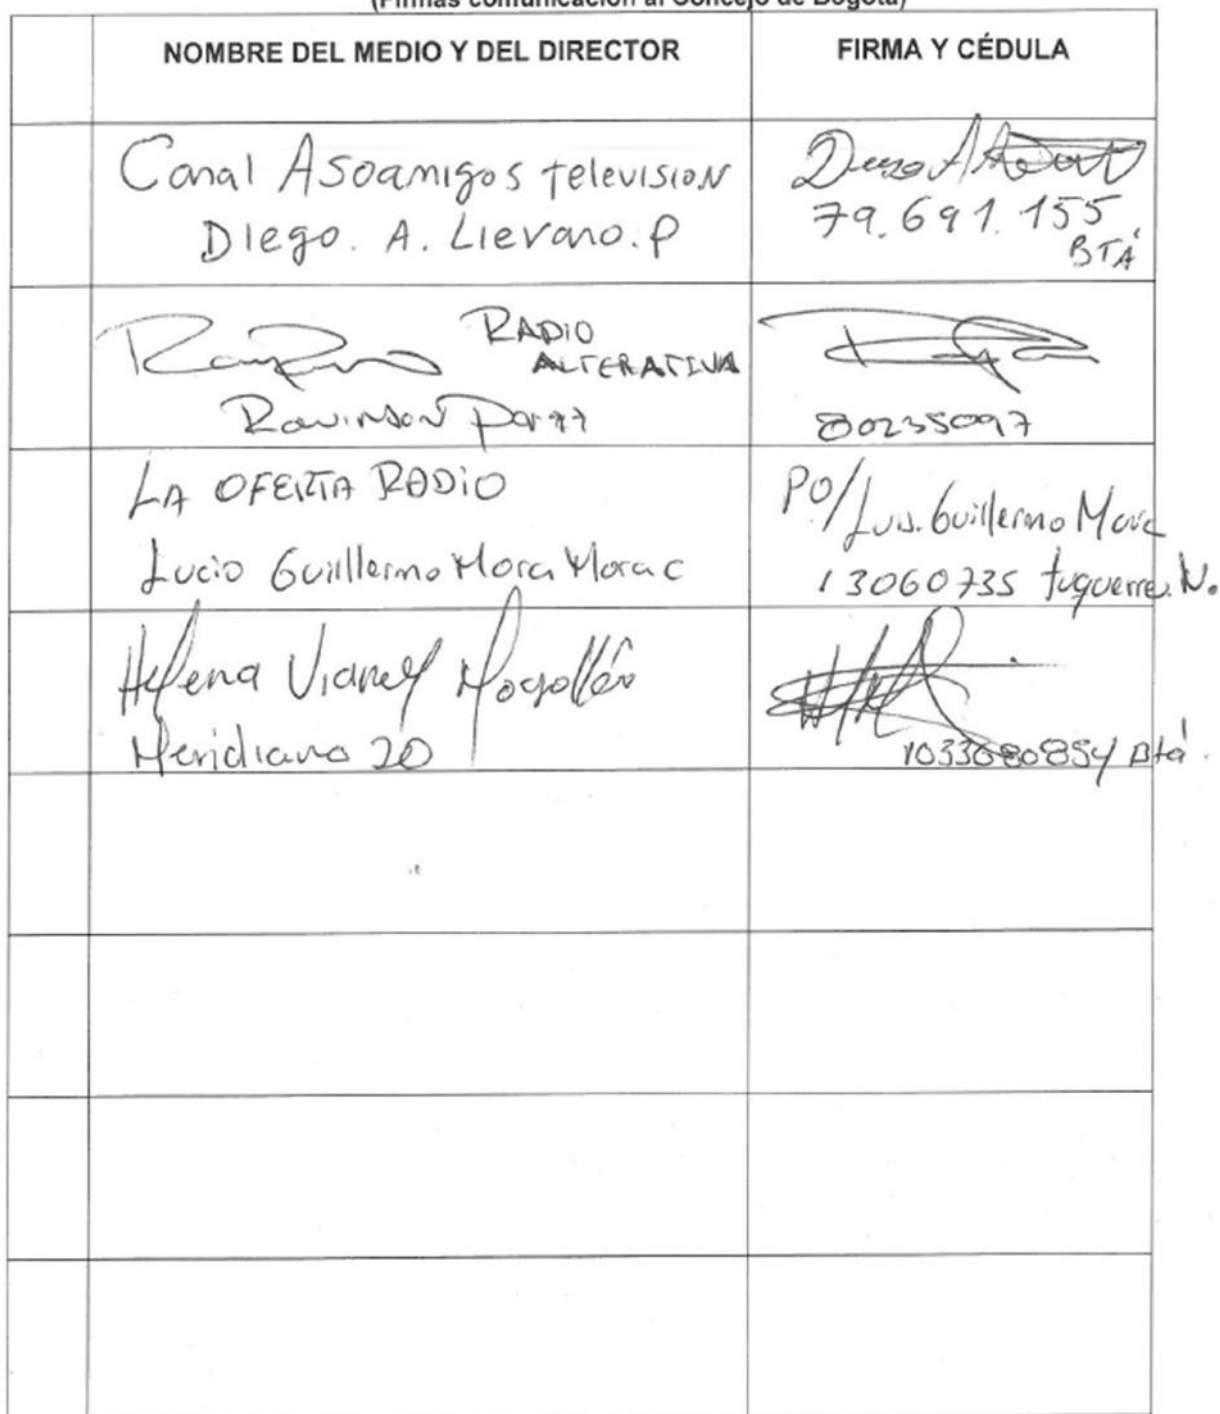 (Firmas comunicación al Concejo de Bogotá)
NOMBRE DEL MEDIO Y DEL DIRECTOR
FIRMA Y CÉDULA
Canal Asoamigos television
Diego. A. Lievano. P
79.691.155
BTÁ
RADIO
ALTERATIVA
80235097
LA OFERTA RADIO
Lucio Guillermo Mora Mora C
PO/ Luis. Guillermo Mora
13060735 tuquerre. N.
Helena Vianey Mogollón
Meridiano 20
1033680854 Btá.